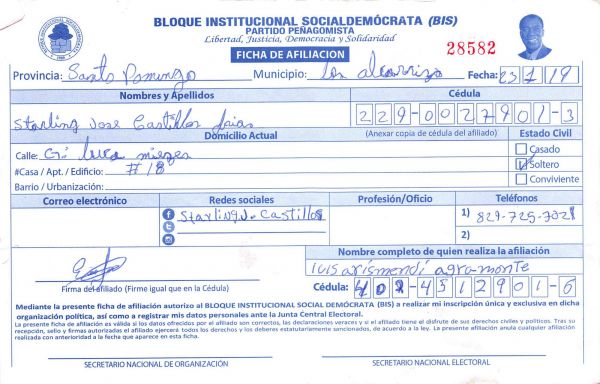 BLOQUE INSTITUCIONAL SOCIALDEMÓCRATA (BIS)
PARTIDO PEÑAGOMISTA
Libertad, Justicia, Democracia y Solidaridad
FICHA DE AFILIACION
28582
Provincia: Santo Domingo Municipio: Los alcarrizo Fecha: 23/1/19
Nombres y Apellidos Cédula
Starling Jose Castillos 229-0027901-3
Domicilio Actual (Anexar copia de cédula del afiliado) Estado Civil
Calle: C
#Casa / Apt. / Edificio: #18
Barrio / Urbanización:
Casado
Soltero
Conviviente
Correo electrónico Redes sociales Profesión/Oficio Teléfonos
StarlingJ. Castillos 1) 829-725-7021
2)
Nombre completo de quien realiza la afiliación
luis arismendi agramonte
Firma del afiliado (Firme igual que en la Cédula) Cédula: 402-4512901-6
Mediante la presente ficha de afiliación autorizo al BLOQUE INSTITUCIONAL SOCIAL DEMÓCRATA (BIS) a realizar mi inscripción única y exclusiva en dicha
organización política, así como a registrar mis datos personales ante la Junta Central Electoral.
La presente ficha de afiliación es válida si los datos ofrecidos por el afiliado son correctos, las declaraciones veraces y si el afiliado tiene el disfrute de sus derechos civiles y políticos. Tras su
recepción, sello y firmas autorizadas el afiliado ejercerá todos los derechos y los deberes estatutariamente sancionados, de acuerdo a la ley. La presente afiliación anula cualquier afiliación
realizada con anterioridad a la fecha que aparece en esta ficha.
SECRETARIO NACIONAL DE ORGANIZACIÓN SECRETARIO NACIONAL ELECTORAL